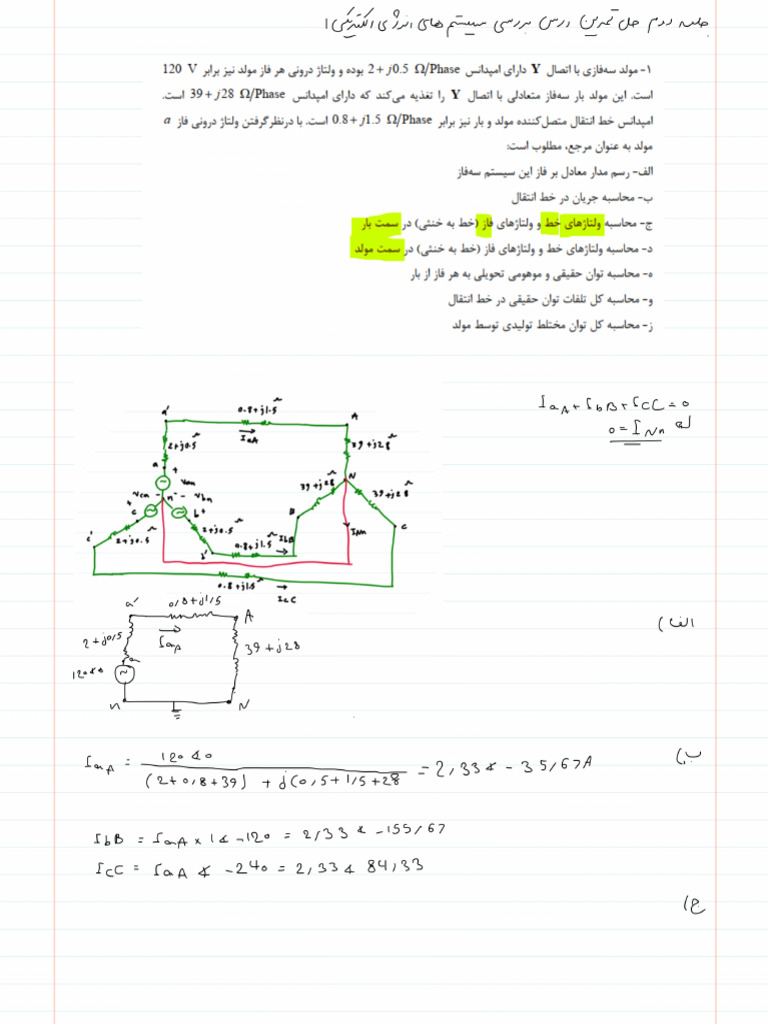 جلسه دوم حل تمرین درس بررسی سیستم های انرژی الکتریکی ۱
۱- مولد سه‌فازی با اتصال Y دارای امپدانس 2+j0.5 Ω/Phase بوده و ولتاژ درونی هر فاز مولد نیز برابر 120 V
است. این مولد بار سه‌فاز متعادلی با اتصال Y را تغذیه می‌کند که دارای امپدانس 39+j28 Ω/Phase است.
امپدانس خط انتقال متصل‌کننده مولد و بار نیز برابر 0.8+j1.5 Ω/Phase است. با درنظرگرفتن ولتاژ درونی فاز a
مولد به عنوان مرجع، مطلوب است:
الف- رسم مدار معادل بر فاز این سیستم سه‌فاز
ب- محاسبه جریان در خط انتقال
ج- محاسبه ولتاژهای خط و ولتاژهای فاز (خط به خنثی) در سمت بار
د- محاسبه ولتاژهای خط و ولتاژهای فاز (خط به خنثی) در سمت مولد
ه- محاسبه توان حقیقی و موهومی تحویلی به هر فاز از بار
و- محاسبه کل تلفات توان حقیقی در خط انتقال
ز- محاسبه کل توان مختلط تولیدی توسط مولد
0.8+j1.5 Ω
a'
A
IaA
IaA + IbB + ICC = 0
0 = INn
2+j0.5 Ω
39+j28 Ω
a
+
Van
N
39+j28 Ω
39+j28 Ω
Vcn
-
n
-
Vbn
+
c
b+
B
C
INn
c'
2+j0.5 Ω
2+j0.5 Ω
b'
0.8+j1.5 Ω
IbB
0.8+j1.5 Ω
IcC
0,8+j1,5
a'
A
الف)
2+j0,5
IaA
39+j28
a
120∡0
n
N
ب)
IaA = 120∡0 / (2+0,8+39) + j(0,5+1,5+28 = 2,33∡-35,67A
IbB = IaA × 1∡-120 = 2,33∡-155,67
ICC = IaA ∡ -240 = 2,33∡84,33
ج)